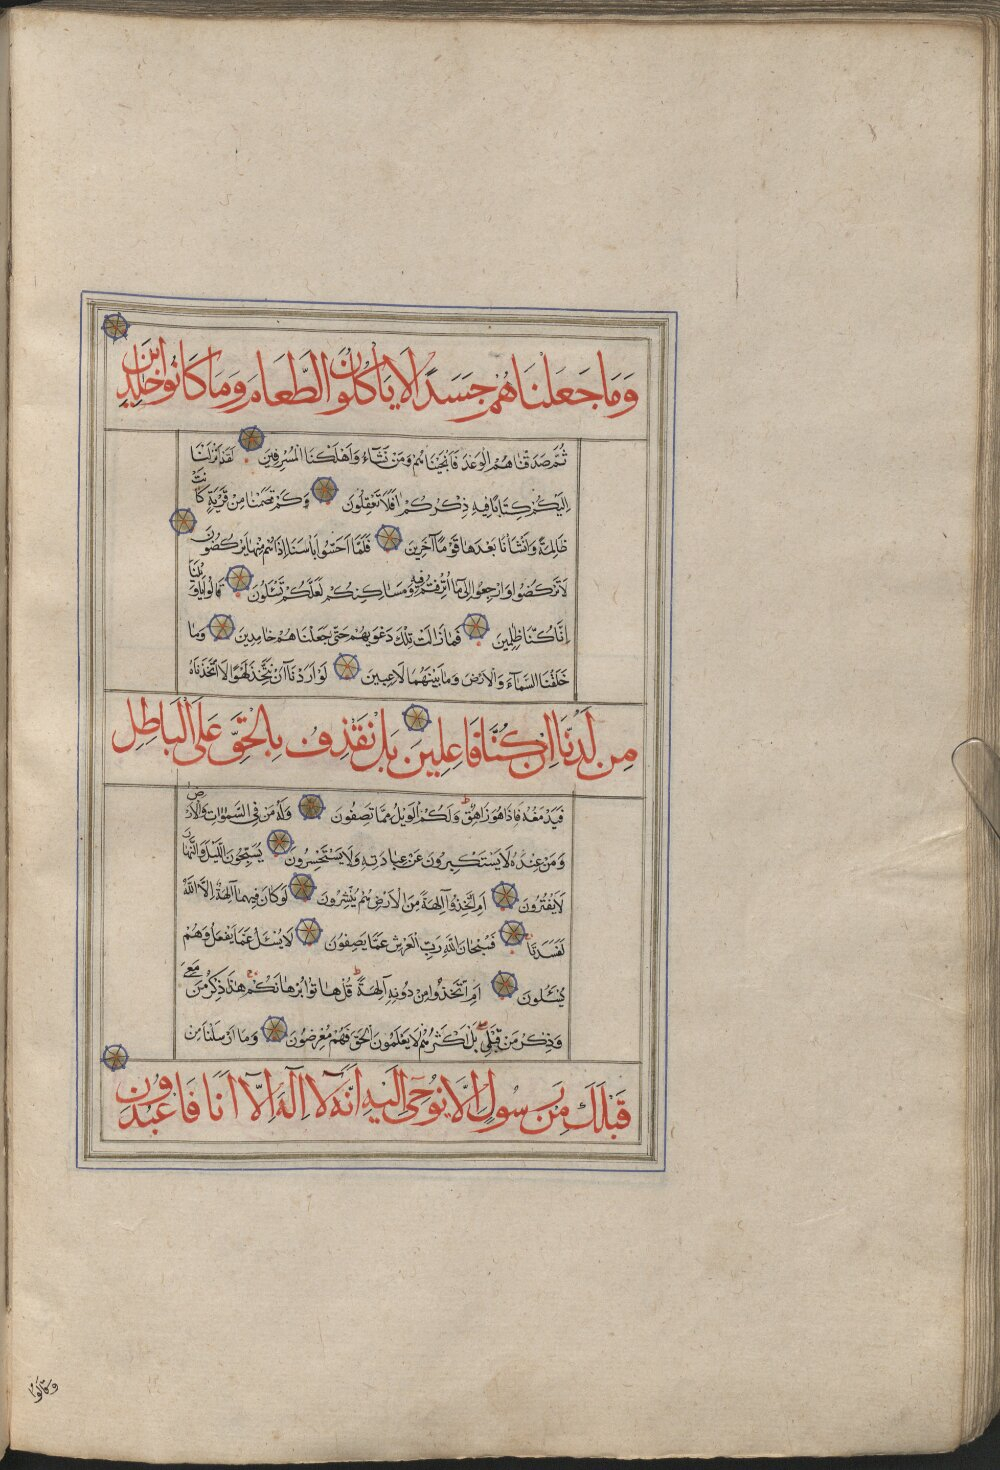 وَمَا جَعَلْنَاهُمْ جَسَدًا لَا يَأْكُلُونَ الطَّعَامَ وَمَا كَانُوا خَالِدِينَ
ثُمَّ صَدَقْنَاهُمُ الْوَعْدَ فَأَنْجَيْنَاهُمْ وَمَنْ نَشَاءُ وَأَهْلَكْنَا الْمُسْرِفِينَ لَقَدْ أَنْزَلْنَا
إِلَيْكُمْ كِتَابًا فِيهِ ذِكْرُكُمْ أَفَلَا تَعْقِلُونَ وَكَمْ قَصَمْنَا مِنْ قَرْيَةٍ كَانَتْ
ظَالِمَةً وَأَنْشَأْنَا بَعْدَهَا قَوْمًا آخَرِينَ فَلَمَّا أَحَسُّوا بَأْسَنَا إِذَا هُمْ مِنْهَا يَرْكُضُونَ
لَا تَرْكُضُوا وَارْجِعُوا إِلَى مَا أُتْرِفْتُمْ فِيهِ وَمَسَاكِنِكُمْ لَعَلَّكُمْ تُسْئَلُونَ قَالُوا يَا وَيْلَنَا
إِنَّا كُنَّا ظَالِمِينَ فَمَا زَالَتْ تِلْكَ دَعْوَيهُمْ حَتَّى جَعَلْنَاهُمْ حَصِيدًا خَامِدِينَ وَمَا
خَلَقْنَا السَّمَاءَ وَالْأَرْضَ وَمَا بَيْنَهُمَا لَاعِبِينَ لَوْ أَرَدْنَا أَنْ نَتَّخِذَ لَهْوًا لَاتَّخَذْنَاهُ
مِنْ لَدُنَّا إِنْ كُنَّا فَاعِلِينَ بَلْ نَقْذِفُ بِالْحَقِّ عَلَى الْبَاطِلِ
فَيَدْمَغُهُ فَإِذَا هُوَ زَاهِقٌ وَلَكُمُ الْوَيْلُ مِمَّا تَصِفُونَ وَلَهُ مَنْ فِي السَّمٰوَاتِ وَالْأَرْضِ
وَمَنْ عِنْدَهُ لَا يَسْتَكْبِرُونَ عَنْ عِبَادَتِهِ وَلَا يَسْتَحْسِرُونَ يُسَبِّحُونَ اللَّيْلَ وَالنَّهَارَ
لَا يَفْتُرُونَ أَمِ اتَّخَذُوا آلِهَةً مِنَ الْأَرْضِ هُمْ يُنْشِرُونَ لَوْ كَانَ فِيهِمَا آلِهَةٌ إِلَّا اللَّهُ
لَفَسَدَتَا فَسُبْحَانَ اللَّهِ رَبِّ الْعَرْشِ عَمَّا يَصِفُونَ لَا يُسْئَلُ عَمَّا يَفْعَلُ وَهُمْ
يُسْئَلُونَ أَمِ اتَّخَذُوا مِنْ دُونِهِ آلِهَةً قُلْ هَاتُوا بُرْهَانَكُمْ هٰذَا ذِكْرُ مَنْ مَعِيَ
وَذِكْرُ مَنْ قَبْلِي بَلْ أَكْثَرُهُمْ لَا يَعْلَمُونَ الْحَقَّ فَهُمْ مُعْرِضُونَ وَمَا أَرْسَلْنَا مِنْ
قَبْلِكَ مِنْ رَسُولٍ إِلَّا نُوحِي إِلَيْهِ أَنَّهُ لَا إِلٰهَ إِلَّا أَنَا فَاعْبُدُونِ
وَقَالُوا